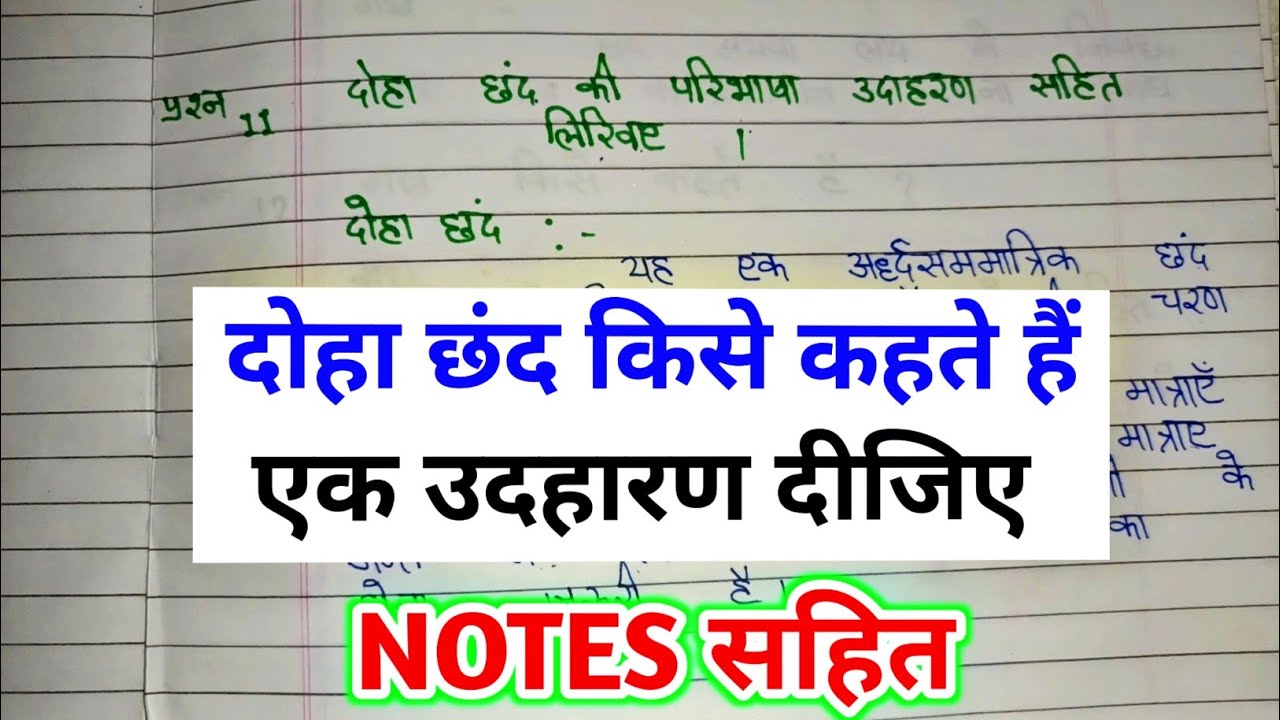 प्रश्न 11 दोहा छंद की परिभाषा उदाहरण सहित
लिखिए ।
दोहा छंद :-
यह एक अर्द्धसममात्रिक छंद
चरण
दोहा छंद किसे कहते हैं
मात्राएँ
मात्राए
एक उदहारण दीजिए
के
का
है
NOTES सहित